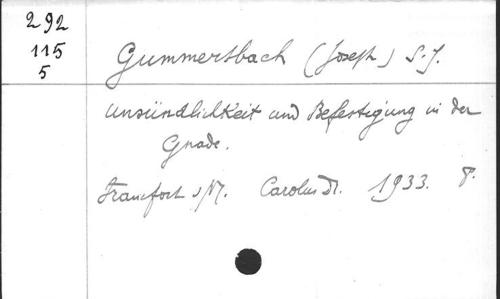 292
115
5
Gummersbach (Joseph) S.J.
Unsündlichkeit und Befestigung in der
Gnade.
Francfort s/M. Carolus Dr. 1933. 8.